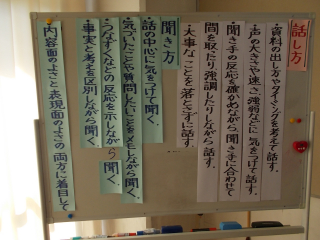 話し方
・資料の出し方やタイミングを考えて話す。
・声の大きさや速さ、強弱などに気をつけて話す。
・聞き手の反応を確かめながら、聞き手に合わせて
間を取ったり、強調したりしながら話す。
・大事なことを落とさずに話す。
聞き方
・話の中心に気をつけて聞く。
・気づいたことや質問したいことをメモしながら聞く。
・うなずくなどの反応を示しながら聞く。
・事実と考えを区別しながら聞く。
・内容面のよさと表現面のよさの両方に着目して